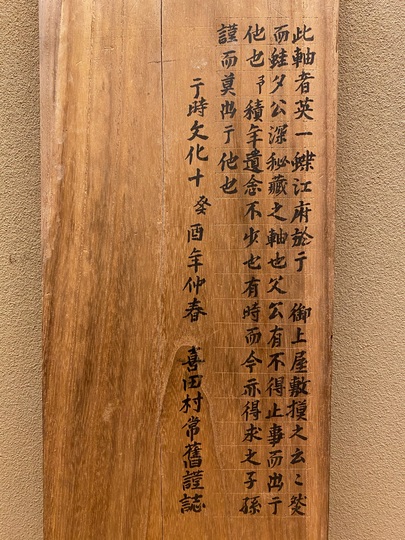 此軸者英一蝶江府於于 御上屋敷摸之玄〻焚
而蛙夕公深秘藏之軸也父公有不得止事而出于
他也予積年遺念不少也有時而今亦得求之子孫
謹而莫出于他也
于時文化十癸酉年仲春 喜田村常舊謹誌